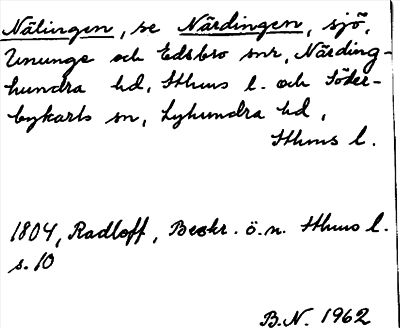 Nälingen, se Närdingen, sjö,
Ununge och Edsbro snr, Närding-
hundra hd, Sthms l. och Söder-
bykarls sn, Lyhundra hd,
Sthms l.
1804, Radloff, Beskr. ö. n. Sthms l.
s. 10
B.N. 1962